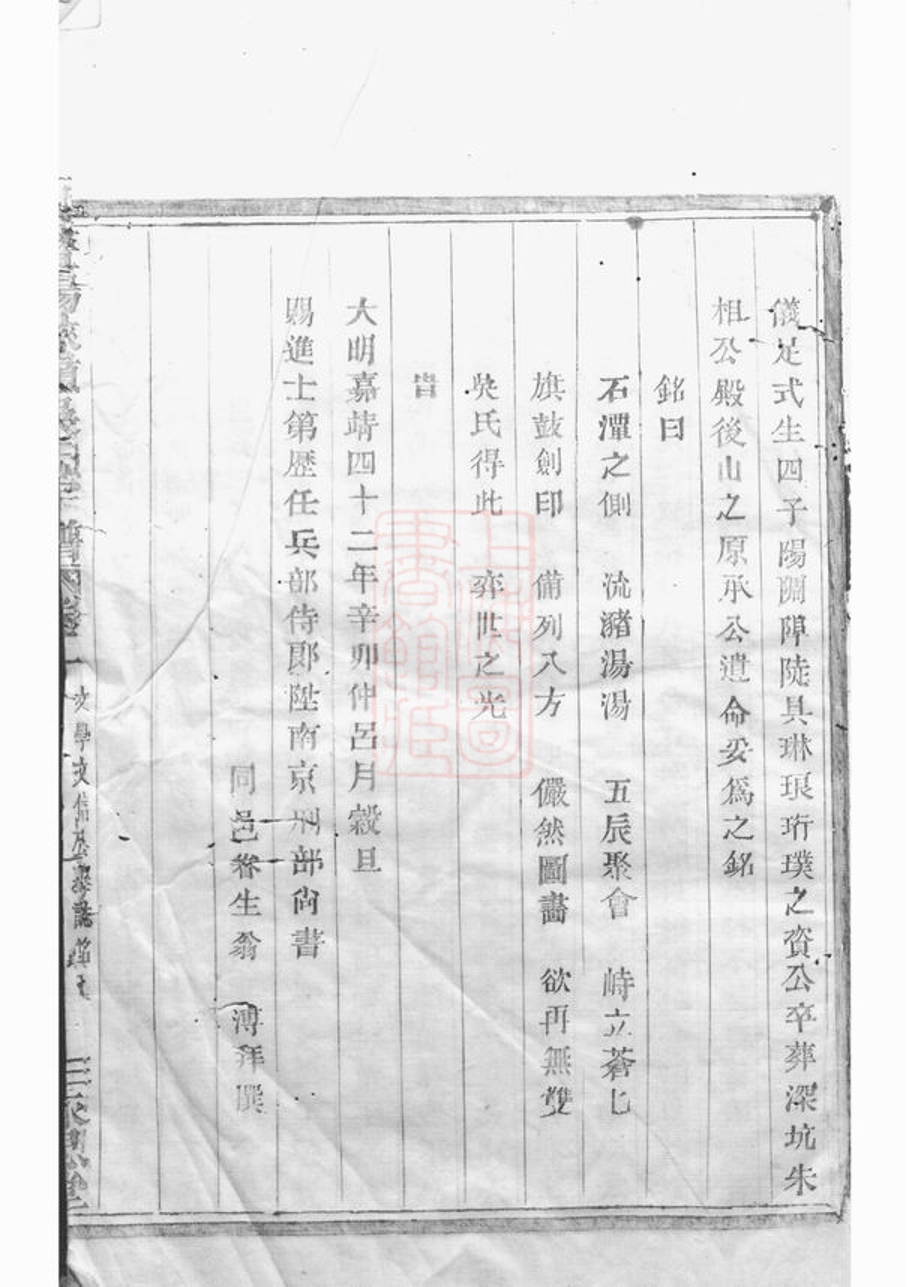 儀足式生四子陽關陣陡具琳琅珩璞之資公卒葬深坑朱
相公殿後山之原承公遺命妥爲之銘
銘曰
石潭之側 流瀦湯湯 五辰聚會 峙立蒼七
旗鼓劍印 備列八方 儼然圖畵 欲再無雙
吳氏得此 弈世之光
旹
大明嘉靖四十二年辛卯仲呂月穀旦
賜進士第歷任兵部侍郎陞南京刑部尙書
同邑眷生翁 溥拜撰
上海圖書館藏